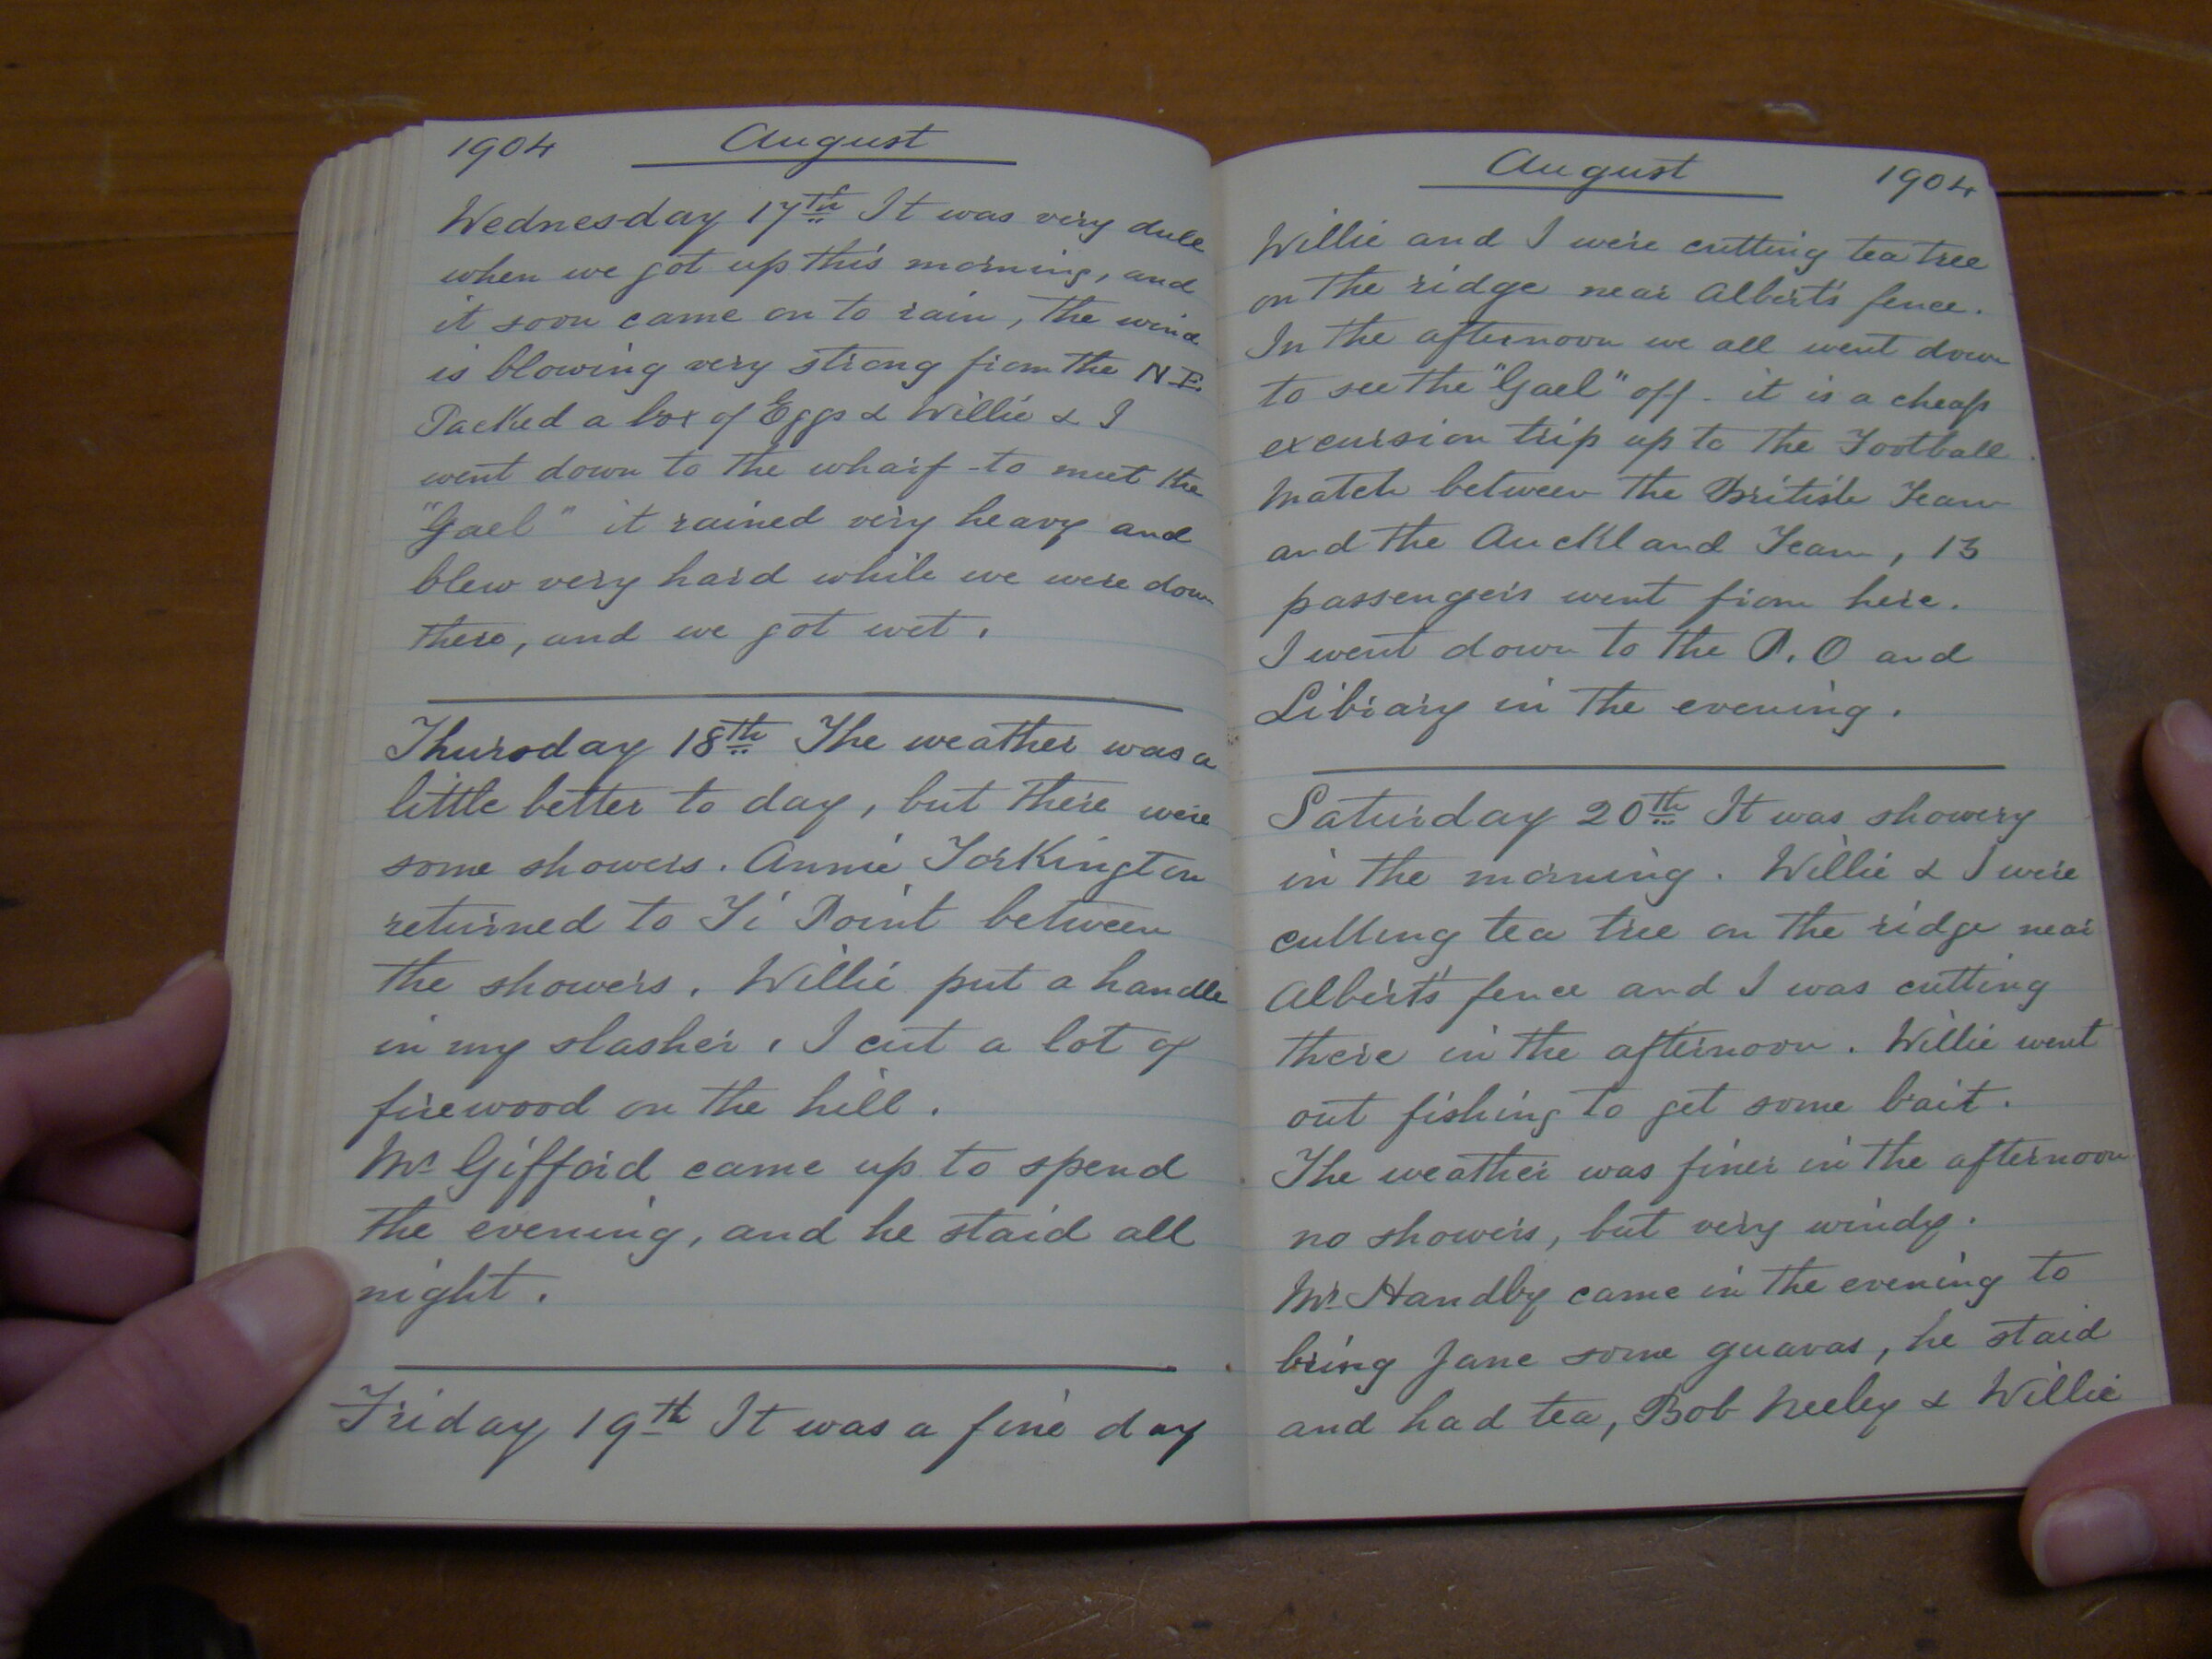 1904 August
Wednesday 17th It was very dull
when we got up this morning, and
it soon came on to rain, the wind
is blowing very strong from the N E.
Packed a box of Eggs & Willie & I
went down to the wharf to meet the
"Gael" it rained very heavy and
blew very hard while we were down
there, and we got wet.
Thursday 18th The weather was a
little better to day, but there were
some showers. Annie Torkington
returned to Ti Point between
the showers. Willie put a handle
in my slasher. I cut a lot of
firewood on the hill.
Mr Gifford came up to spend
the evening, and he staid all
night.
Friday 19th It was a fine day
August 1904
Willie and I were cutting tea tree
on the ridge near Albert's fence.
In the afternoon we all went down
to see the "Gael" off - it is a cheap
excursion trip up to the Football
Match between the British Team
and the Auckland Team, 13
passengers went from here.
I went down to the P.O and
Library in the evening.
Saturday 20th It was showery
in the morning. Willie & I were
cutting tea tree on the ridge near
Albert's fence and I was cutting
there in the afternoon. Willie went
out fishing to get some bait.
The weather was finer in the afternoon
no showers, but very windy.
Mr Handby came in the evening to
bring Jane some guavas, he staid
and had tea, Bob Neeley & Willie